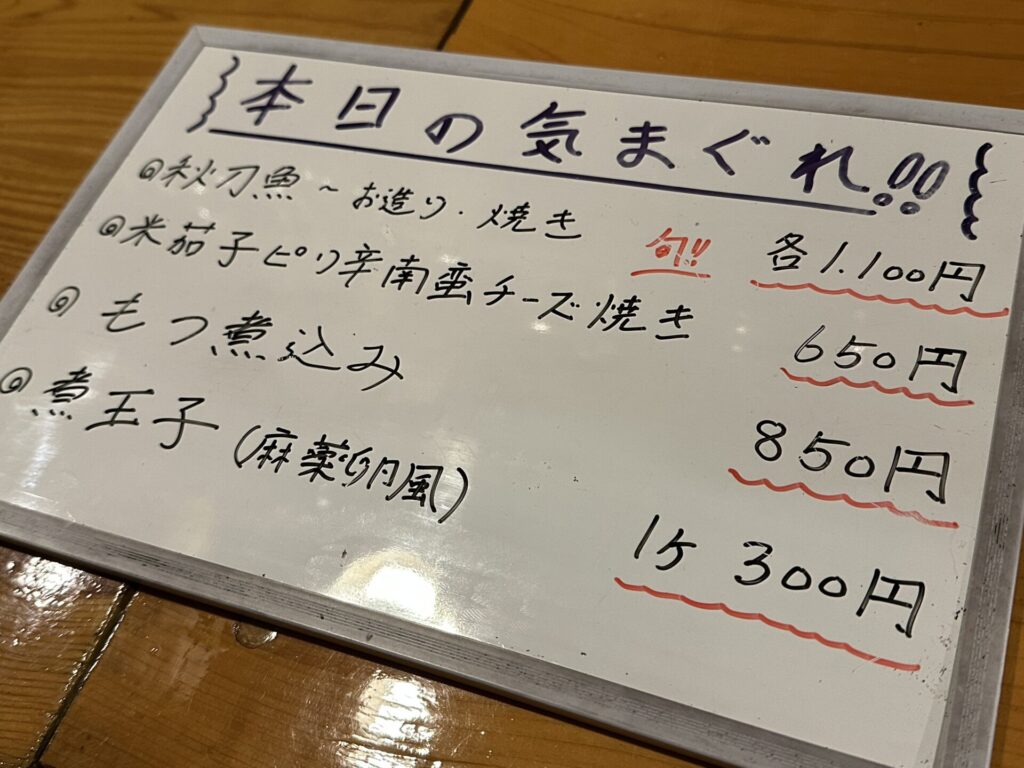 本日の気まぐれ!!
◎秋刀魚~お造り・焼き 旬!! 各1.100円
◎米茄子ピリ辛南蛮チーズ焼き 650円
◎もつ煮込み 850円
◎煮玉子(麻薬卵風) 1ヶ 300円